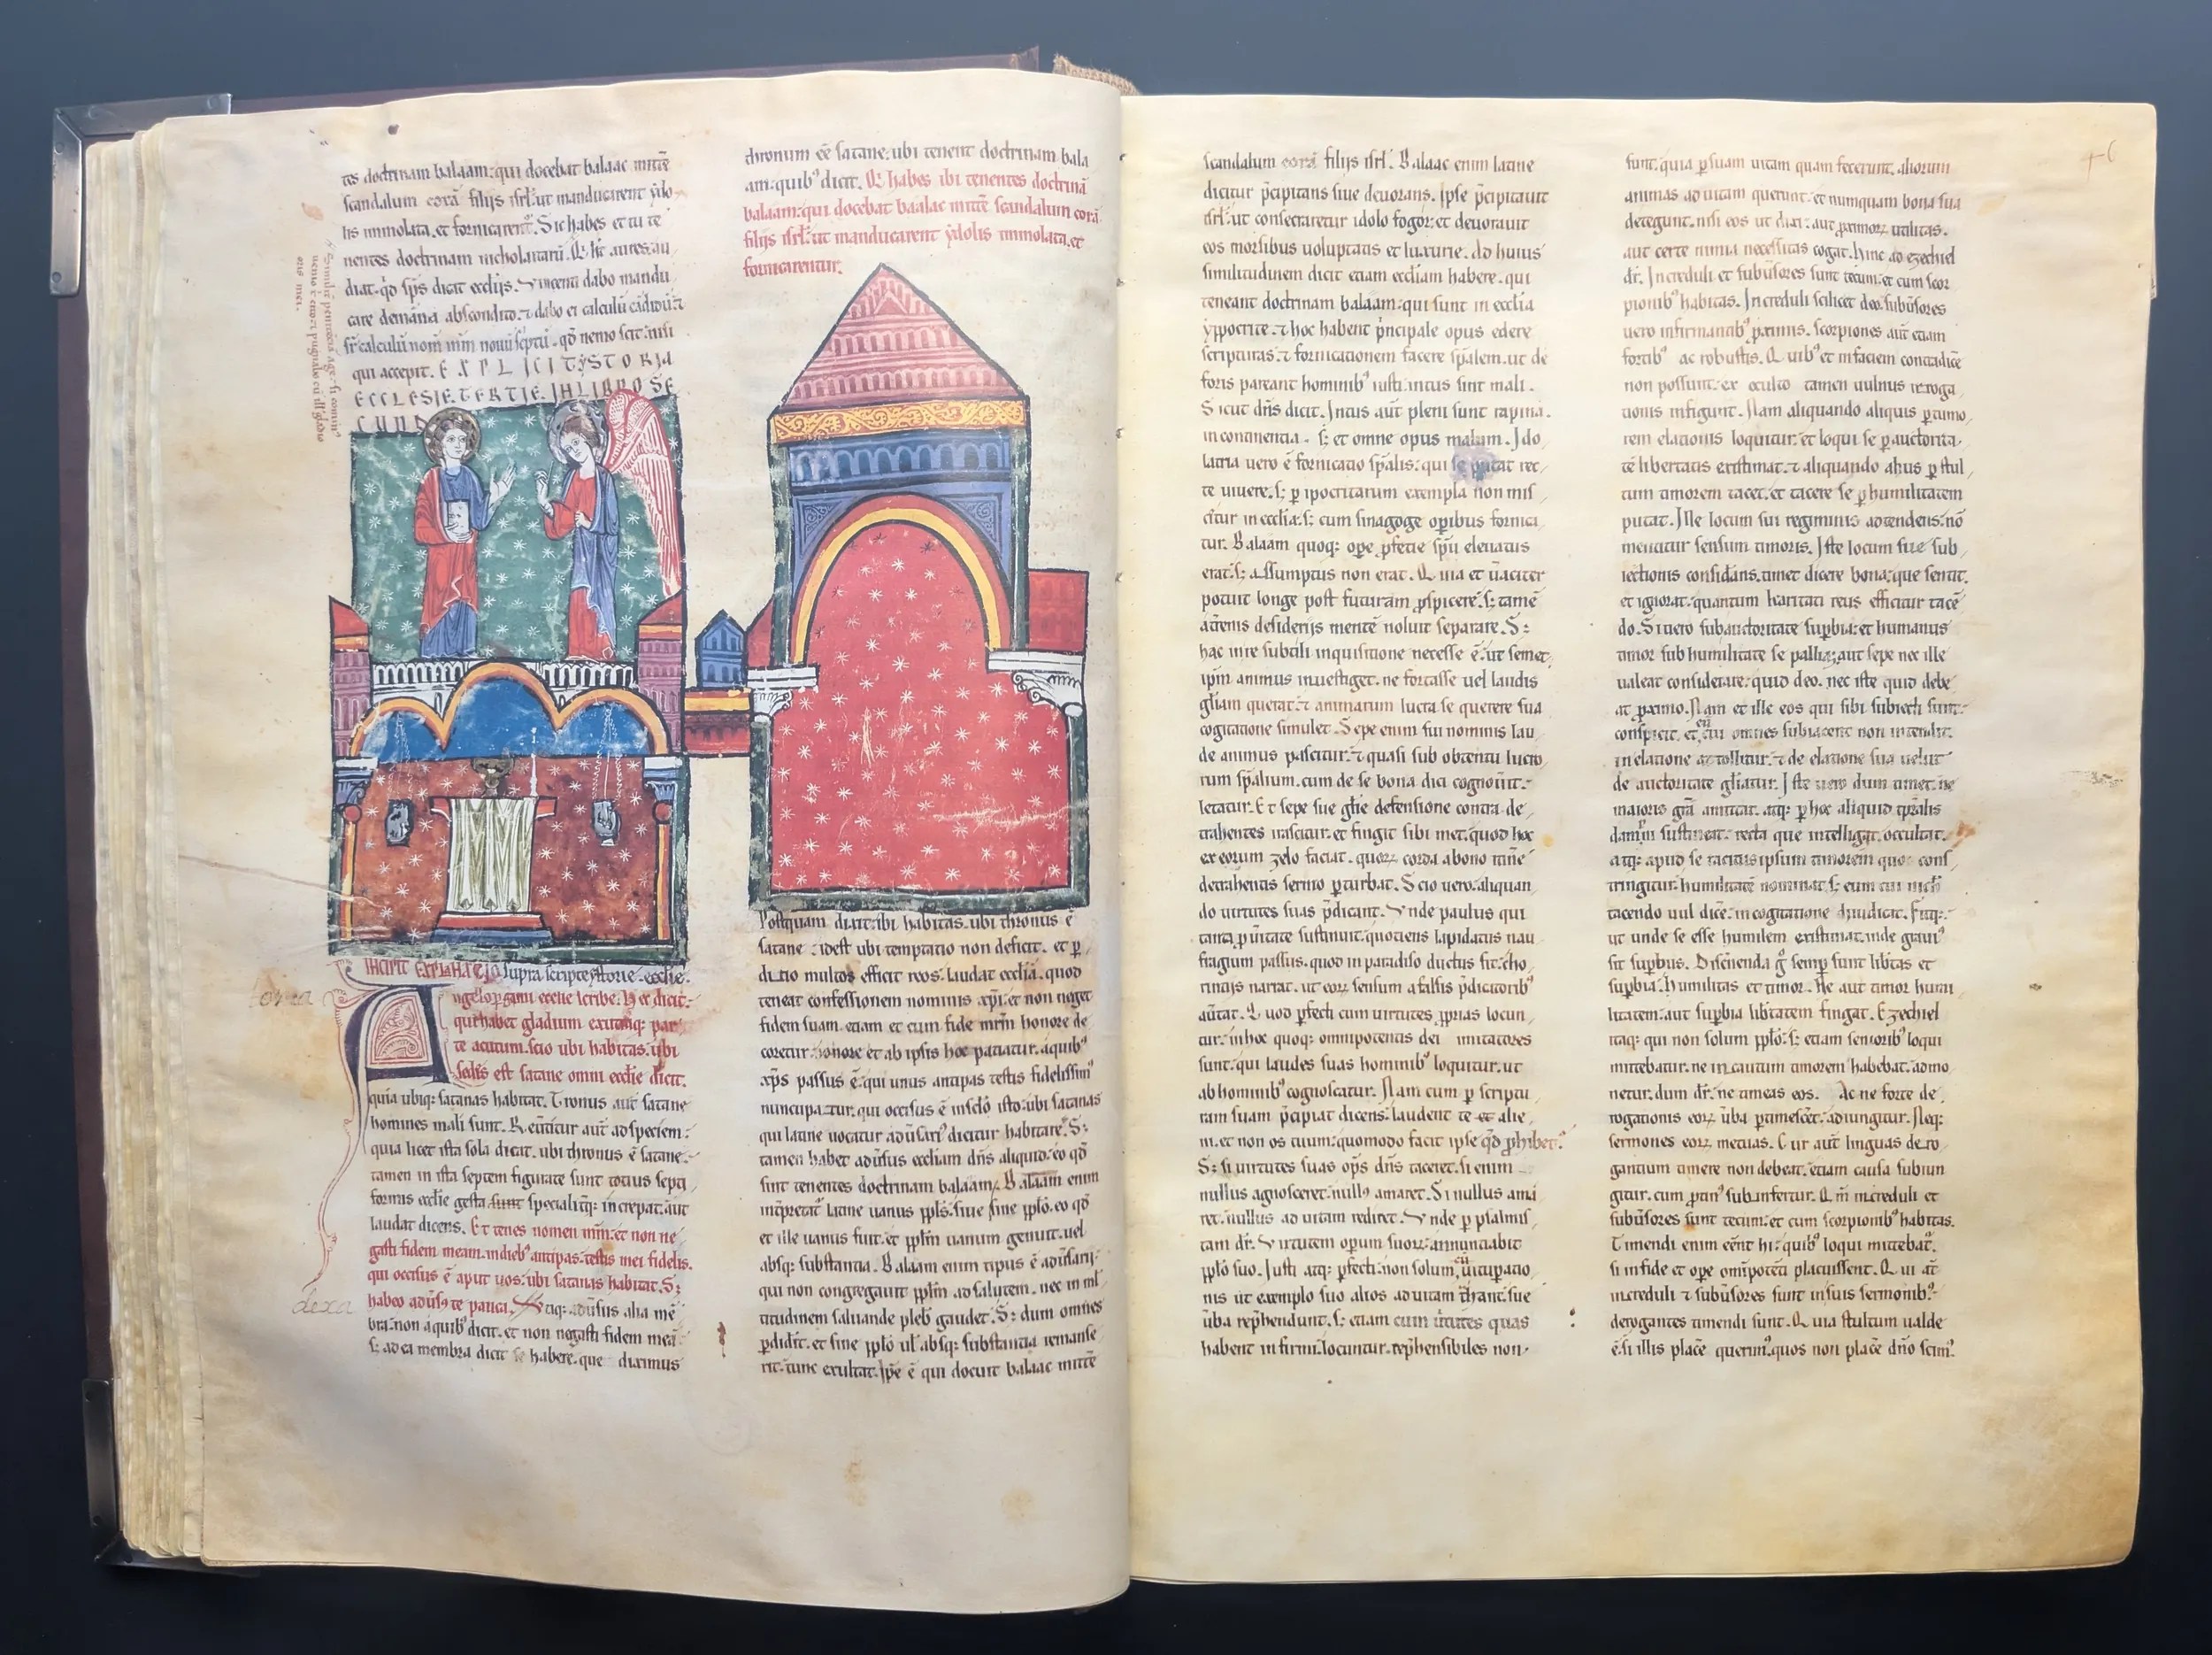 tes doctrinam balaam: qui docebat balaac mittē
scandalum corā filijs isrl̄: ut manducarent ẏdo
lis immolata. et fornicarent̉. Sic habes et tu te
nentes doctrinam nicholaitarū. Qͥ hꝫ aures. au
diat. qd̄ sp̄s dicat eccl̄ijs. Vincenti dabo mandu
care de māna abscondito. ⁊ dabo ei calculū cādidū: ⁊
sr̄ calculū nom̄ nouū sc̄ptū. qd̄ nemo scit: nisi
qui accepit. EXPLICIT ẎSTORIA
ECCLESIE. TERTIE. IN LIBRO SE
CUNDO
INCIPIT EXPLANATIO supra scripte ẏstorie. ecclīe.
Angelo ꝑgami ecclīe scribe. Hec dicit:
qui habet gladium ex utraqꝫ par
te acutum. scio ubi habitas: ubi
sedes est satane omni ecclīe dicit.
quia ubiqꝫ satanas habitat. Tronus aut̄ satane
homines mali sunt. Reuertitur aut̄ ad speciem:
quia licet ista sola dicat. ubi thronus ē satane:
tamen in ista septem figurate sunt totius septi
formis ecclīe gesta sunt specialit̉qꝫ increpat: aut
laudat dicens. Et tenes nomen m̄m: et non ne
gasti fidem meam. in diebꝰ antipas: testis mei fidelis.
qui occisus ē aput uos: ubi satanas habitat. Sꝫ
habeo adūsꝰ te pauca. Itaqꝫ adūsus alia mē
bra: non a quibꝰ dicit. et non negasti fidem meā:
sꝫ ad ea membra dicit se habere. que diximus
toma
dexa
thronum eē satane: ubi tenent doctrinam bala
am: quibꝰ dicit. Qͥ habes ibi tenentes doctrinā
balaam: qui docebat baalac mittē scandalum corā
filijs isrl̄: ut manducarent ẏdolis immolata. et
fornicarentur.
Postquam dixit: ibi habitas. ubi thronus ē
satane: idest ubi temptatio non deficit. et ꝑ
ditio multos efficit reos: laudat eccl̄ia. quod
teneat confessionem nominis xp̄i: et non neget
fidem suam. etiam et cum fide mr̄m honore de
coretur: honore et ab ipsis hoc patiatur. a quibꝰ
xp̄s passus ē: qui unus antipas testis fidelissimꝰ
nuncupatur. qui occisus ē in sclō isto: ubi satanas
qui latine uocatur adūsariꝰ dicitur habitare. Sꝫ
tamen habet adūsus eccl̄iam dn̄s aliquid: eo qd̄
sunt tenentes doctrinam balaam. Balaam enim
int̉pretat̉ latine uanus pp̄ls. siue sine pp̄lō. eo qd̄
et ille uanus fuit: et pp̄lm̄ uanum genuit. uel
absqꝫ substantia. Balaam enim tipus ē adūsarij:
qui non congregauit pp̄lm̄ ad salutem. nec in ml̄
titudinem saluande plebꝰ gaudet. Sꝫ dum omnes
ꝑdidit. et sine pp̄lō ul̄ absqꝫ substantia remanse
rit: tunc exultat. Ip̄e ē qui docuit balaac mittē
scandalum corā filijs isrl̄. Balaac enim latine
dicitur p̄cipitans siue deuorans. Ipse p̄cipitauit
isrl̄: ut consecraretur idolo fogor: et deuorauit
eos morsibus uoluptatis et luxurie. Ad huius
similitudinem dicit etiam eccl̄iam habere. qui
teneant doctrinam balaam: qui sunt in eccl̄ia
ẏppocrite. ⁊ hoc habent p̄ncipale opus edere
scripturas. ⁊ fornicationem facere sp̄alem. ut de
foris pareant hominibꝰ iusti: intus sint mali.
Sicut dn̄s dicit. Intus aut̄ pleni sunt rapina.
incontinentia. sꝫ et omne opus malum. Ido
latria uero ē fornicatio sp̄alis: qui se putat rec
te uiuere. sꝫ ꝑ ipocritarum exempla non mis
citur in eccl̄ia: sꝫ cum sinagoge oꝑibus fornica
tur. Balaam quoqꝫ ope ꝓfetie sp̄u eleuatus
erat: sꝫ assumptus non erat. Quia et ūaciter
potuit longe post futuram ꝓspicere: sꝫ tamē
a t̉renis desiderijs mentē noluit separare. Sꝫ
hac in re subtili inquisitione necesse ē: ut semet
ip̄m animus inuestiget. ne fortasse uel laudis
gl̄iam querat: ⁊ animarum lucra se querere sua
cogitatione simulet. Sepe enim sui nominis lau
de animus pascitur. ⁊ quasi sub obtentu lucro
rum sp̄alium. cum de se bona dici cognoūit:
letatur. Et sepe sue gl̄ie defensione contra de
trahentes irascitur. et fingit sibi met. quod hoc
ex eorum zelo faciat. quorꝝ corda a bono itinē
detrahentis sermo ꝑturbat. Scio uero: aliquan
do uirtutes suas p̄dicant. Vnde paulus qui
tanta ꝑ ūitate sustinuit: quotiens lapidatus nau
fragium passus. quod in paradiso ductus sit: cho
rintijs narrat. ut eorꝝ sensum a falsis p̄dicatoribꝰ
aūtat. Quod ꝑfecti cum uirtutes ꝓprias locun
tur: in hoc quoqꝫ omnipotentis dei imitatores
sunt: qui laudes suas hominibꝰ loquitur: ut
ab hominibꝰ cognoscatur. Nam cum ꝑ scriptu
ram suam p̄cipiat dicens: laudent te et alie
ni. et non os tuum: quomodo facit ipse qd̄ ꝓhibet?
Sꝫ si uirtutes suas op̄s dn̄s taceret. si enim
nullus agnosceret: nullꝰ amaret. Si nullus ama
ret: nullus ad uitam rediret. Vnde ꝑ psalmis
tam dr̄. Virtutem operum suorꝝ: annuntiabit
pp̄lō suo. Iusti atqꝫ ꝑfecti: non solum cū uituꝑatio
nis ut exemplo suo alios ad uitam t̉hant: sue
ūba rep̄hendunt. sꝫ etiam cum ūtutes quas
habent infirmi: locuntur. rep̄hensibiles non
sunt: quia ꝑ suam uitam quam fecerunt. aliorum
animas ad uitam querunt: et numquam bona sua
detegunt. nisi eos ut dixi: aut ꝓximorꝝ utilitas.
aut certe nimia necessitas cogat. Hinc ad ezechiel
dr̄. Increduli et subūsores sunt tecum: et cum scor
pionibꝰ habitas. Increduli scilicet deo: subūsores
uero infirmantibꝰ ꝓximis. scorpiones aut̄ etiam
fortibꝰ ac robustis. Quibꝰ et in faciem contradicē
non possunt: ex oculto tamen uulnus irroga
tionis infigunt. Nam aliquando aliquis ꝑ tumo
rem elationis loquitur. et loqui se ꝑ auctorita
tē libertatis existimat. ⁊ aliquando alius ꝑ stul
tum timorem tacet. et tacere se ꝑ humilitatem
putat. Ille locum sui regiminis adtendens: nō
metitur sensum timoris. Iste locum sue sub
iectionis considans. timet dicere bona: que sentit.
et ignorat: quantum karitati reus efficitur tacē
do. Si uero sub auctoritate suꝑbia: et humanus
timor sub humilitate se palliat: aut sepe nec ille
ualeat considerare: quid deo. nec iste quid debe
at ꝓximo. Nam et ille eos qui sibi subiecti sunt:
conspicit. et cū cui omnes subiacent non intendit.
in elatione attollitur. ⁊ de elatione sua uelut
de auctoritate gl̄iatur. Iste uero dum timet: ne
maioris grā amittat. atqꝫ ꝑ hoc aliquid tp̄ralis
damni sustineat: recta que intelligat. occultat.
atqꝫ apud se tacitus ipsum timorem quo cons
tringitur: humilitatē nominat. sꝫ eum cui nichil
tacendo uul dicē: in cogitatione diiudicat. Fitqꝫ:
ut unde se esse humilem existimat: inde grauiꝰ
sit suꝑbus. Discnenda gͦ semꝑ sunt libtas et
suꝑbia. humilitas et timor. Ne aut timor humi
litatem: aut suꝑbia libtatem fingat. Ezechiel
itaqꝫ qui non solum pp̄lō: sꝫ etiam senioribꝰ loqui
mittebatur: ne incautum timorem habebat: admo
netur. dum dr̄: ne timeas eos. Ac ne forte de
rogationis eorꝝ ūba ꝑtimescēt: adiungitur. Neqꝫ
sermones eorꝝ metuas. Cur aut̄ linguas dero
gantium timere non debeat: etiam causa subiun
gitur. cum ꝓtinꝰ subinfertur. Qm̄ increduli et
subūsores sunt tecum: et cum scorpionibꝰ habitas.
Timendi enim eēnt hi: quibꝰ loqui mittebat̉.
si in fide et oꝑe omīpotēti placuissent. Quia at
increduli ⁊ subūsores sunt in suis sermonibꝰ:
derogantes timendi sunt. Quia stultum ualde
ē: si illis placē querim̄: quos non placē dn̄o scim̄.